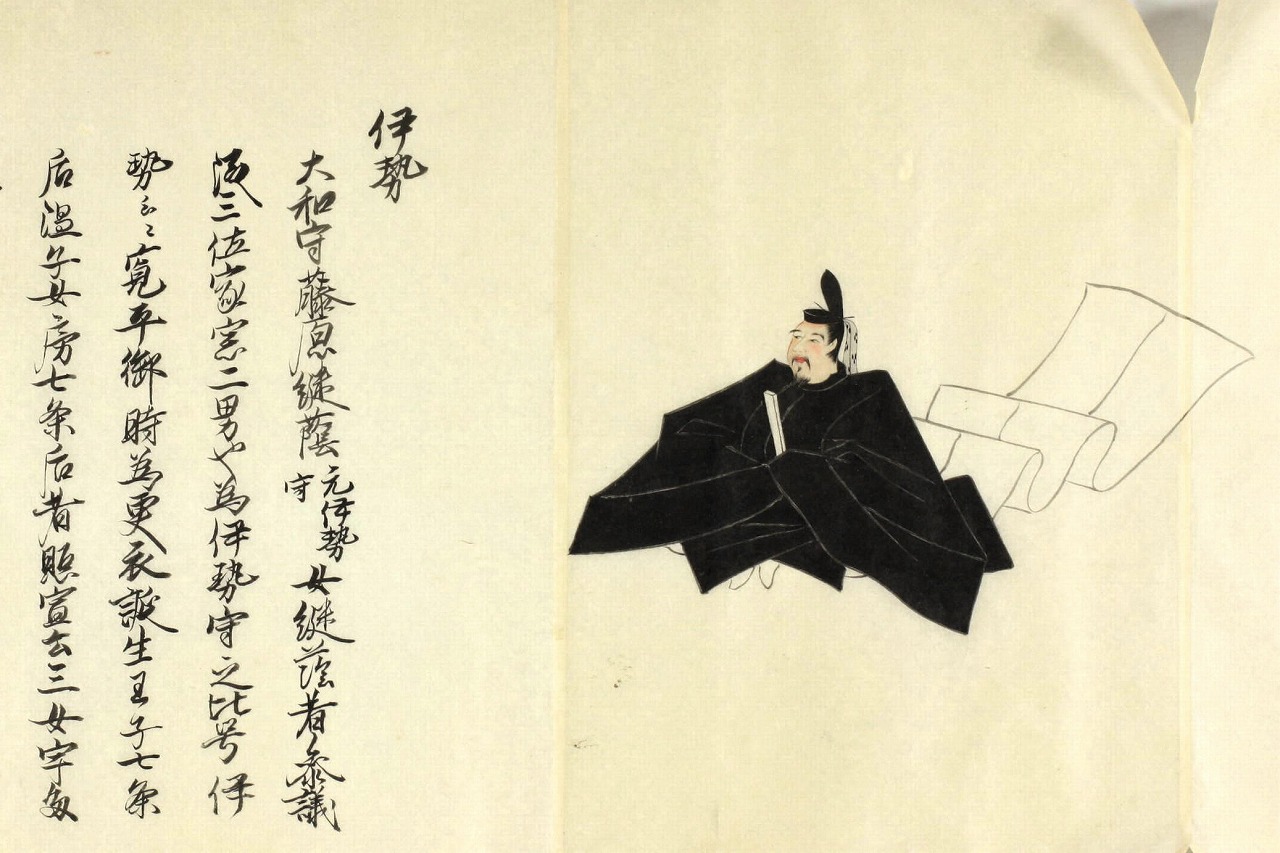 伊勢
大和守藤原継蔭 元伊勢守 女継蔭者参議
従三位家宗二男也為伊勢守之比号伊
勢云々寛平御時為更衣誕生王子七条
后温子女房七条后者照宣公三女宇多